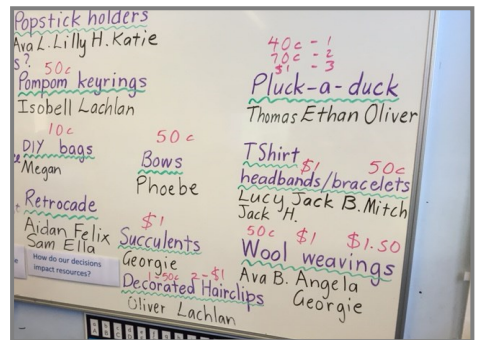 Popstick holders
Ava L. Lilly H. Katie
s?
50c
Pompom keyrings
Isobell Lachlan
10c
DIY bags
Megan
Retrocade
Aidan Felix
Sam Ella
How do our decisions
impact resources?
50c
Bows
Phoebe
$1
Succulents
Georgie
1-50c 2-$1
Decorated Hairclips
Oliver Lachlan
40c - 1
70c - 2
$1 - 3
Pluck-a-duck
Thomas Ethan Oliver
TShirt $1 50c
headbands/bracelets
Lucy Jack B. Mitch
Jack H.
50c $1 $1.50
Wool weavings
Ava B. Angela
Georgie